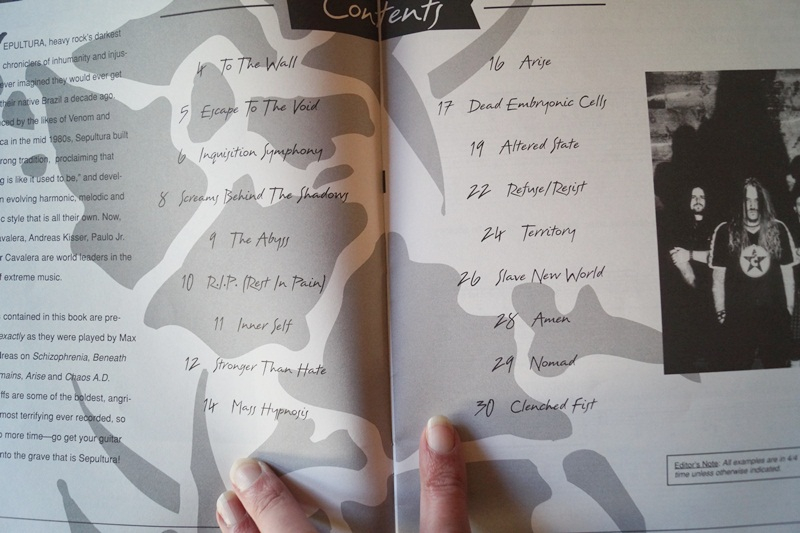 Contents
EPULTURA, heavy rock's darkest
chroniclers of inhumanity and injus-
ever imagined they would ever get
their native Brazil a decade ago.
ced by the likes of Venom and
ca in the mid 1980s, Sepultura built
rong tradition, proclaiming that
g is like it used to be," and devel-
n evolving harmonic, melodic and
c style that is all their own. Now,
avalera, Andreas Kisser, Paulo Jr.
r Cavalera are world leaders in the
f extreme music.
contained in this book are pre-
exactly as they were played by Max
reas on Schizophrenia, Beneath
mains, Arise and Chaos A.D.
ffs are some of the boldest, angri-
most terrifying ever recorded, so
o more time—go get your guitar
nto the grave that is Sepultura!
4 To The Wall
5 Escape To The Void
6 Inquisition Symphony
8 Screams Behind The Shadows
9 The Abyss
10 R.I.P. (Rest In Pain)
11 Inner Self
12 Stronger Than Hate
14 Mass Hypnosis
16 Arise
17 Dead Embryonic Cells
19 Altered State
22 Refuse/Resist
24 Territory
26 Slave New World
28 Amen
29 Nomad
30 Clenched Fist
Editor's Note: All examples are in 4/4
time unless otherwise indicated.